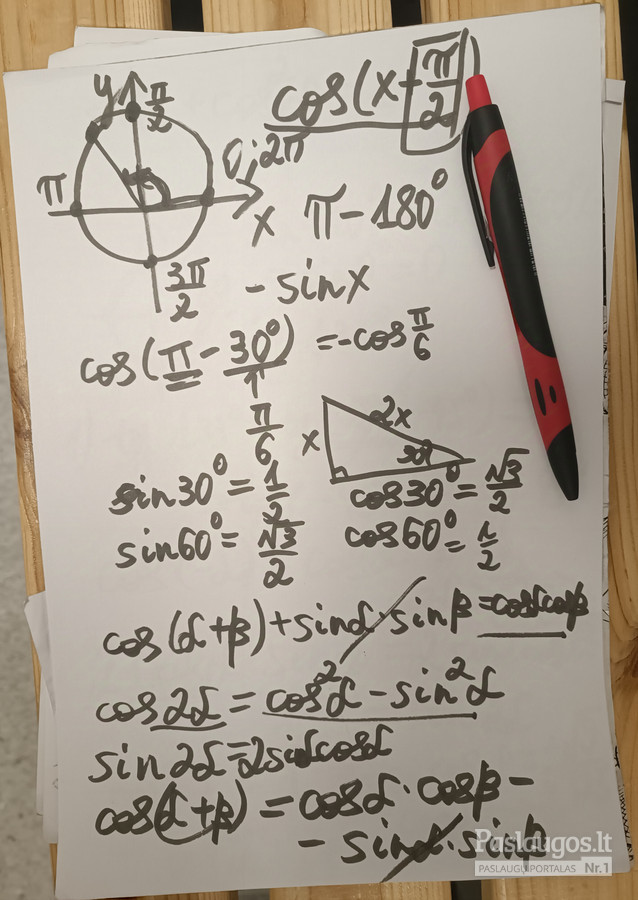 y π/2
cos(x + π/2)
π 0; 2π
x π - 180°
3π/2 - sinx
cos(π - 30°) = -cos π/6
π/6
x 2x 30°
sin30° = 1/2 cos30° = √3/2
sin60° = √3/2 cos60° = 1/2
cos(α+β) + sinα · sinβ = cosα cosβ
cos2α = cos²α - sin²α
sin2α = 2sinαcosα
cos(α+β) = cosα · cosβ -
- sinα · sinβ
Paslaugos.lt
PASLAUGŲ PORTALAS Nr.1